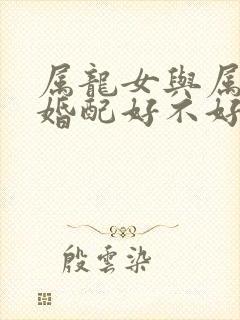 属龍女與属
婚配好不好
殷雲染